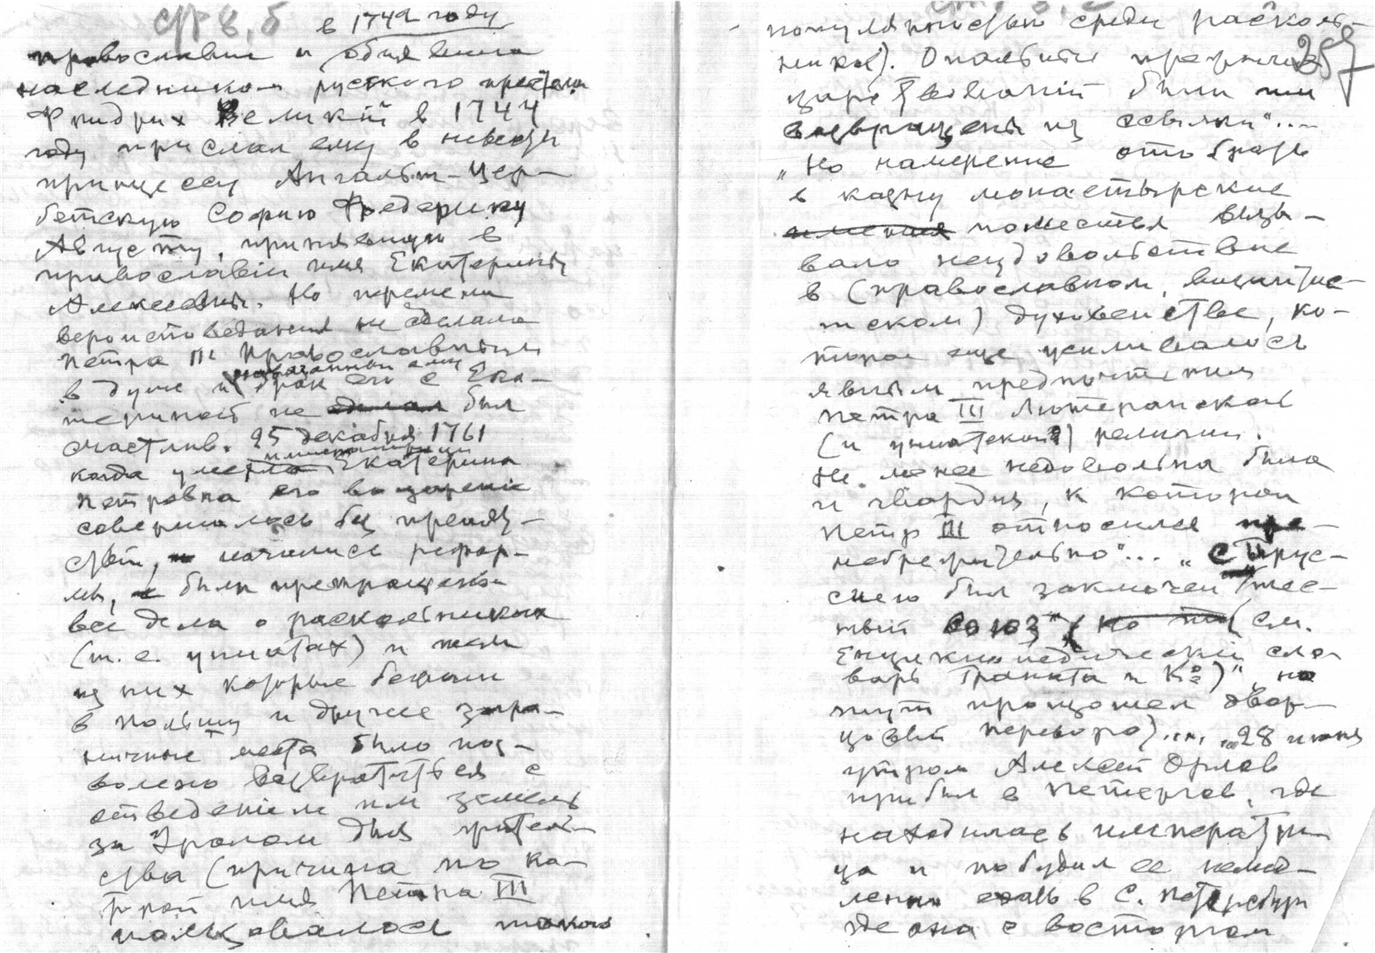 стр 8, б
в 1742 году
православие и объявлена
наследником русского престола
Фридрих Великій в 1744
году прислал ему в невесты
принцессу Ангальт-Цер-
бетскую Софию Фредерику
Августу, принявшую в
православіи имя Екатерины
Алексеевны. Но перемена
вероисповедания не сделала
Петра III православным
в душе и навязанный ему брак его с Ека-
териной не был
счастлив. 25 декабря 1761
когда умерла императрица Екатерина
Петровна его воцареніе
совершилось бы препят-
ствій, начались рефор-
мы, были прекращены
все дела о раскольниках
(т. е. униатах) и тем
из них которые бежали
в Польшу и другие загра-
ничные места было поз-
волено возвратиться с
отведеніем им земель
за Уралом для жительства
ства (причина по ко-
торой имя Петра III
пользовалось такою
популярностью среди расколь-
ников). Опальные прежних
царствований были им
возвращены из ссылки"....
"но намерение отобрать
в казну монастырские
имения поместья вызы-
вало неудовольствие
в (православном, византий-
ском) духовенстве, ко-
торое еще усиливалось
явным предпочтением
Петра III Лютеранской
(и униатской?) религии.
Не менее недовольна была
и гвардия, к которой
Петр III относился пре-
небрежительно"... „С Прус-
сиею был заключен тес-
ный союз" (см.
Енциклопедический сло-
варь Граната и Ко)", но
тут произошел двор-
цовый переворот)...., „28 июня
утром Алексей Орлов
прибыл в Петергоф, где
находилась императри-
ца и побудил ее немед-
ленно ехать в С. Петербург
где она с восторгом
357